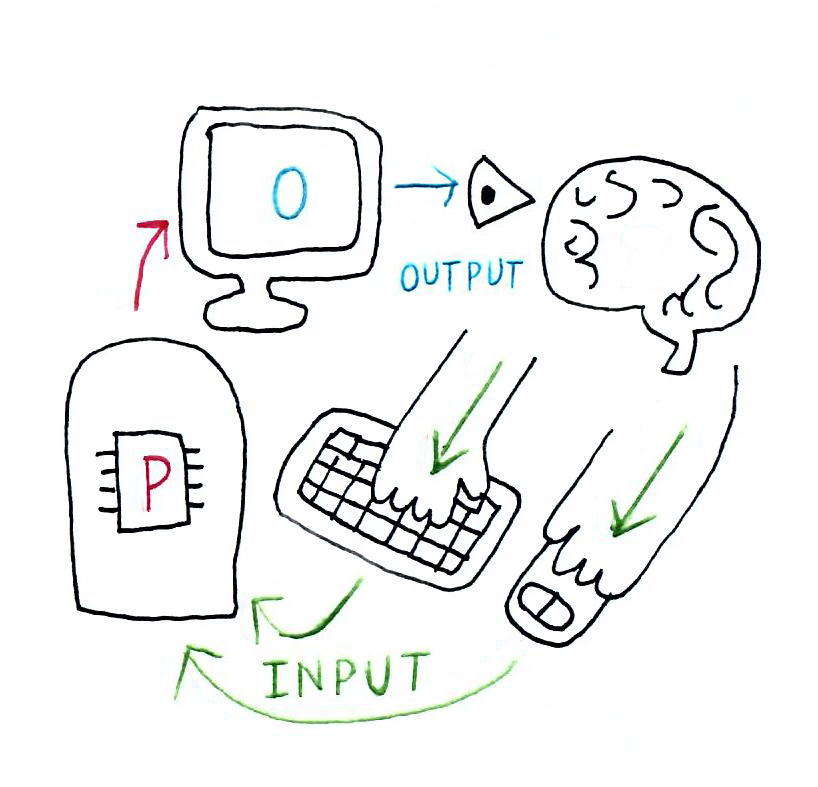 O
OUTPUT
P
INPUT